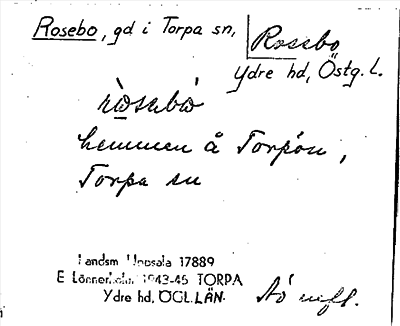 Rosebo, gd i Torpa sn,
Rosebo
Ydre hd, Östg. L.
hemmen å Torpön,
Torpa sn
Landsm. Uppsala 17889
E Lönnerholm 1943-45 TORPA
Ydre hd, ÖGL. LÄN.